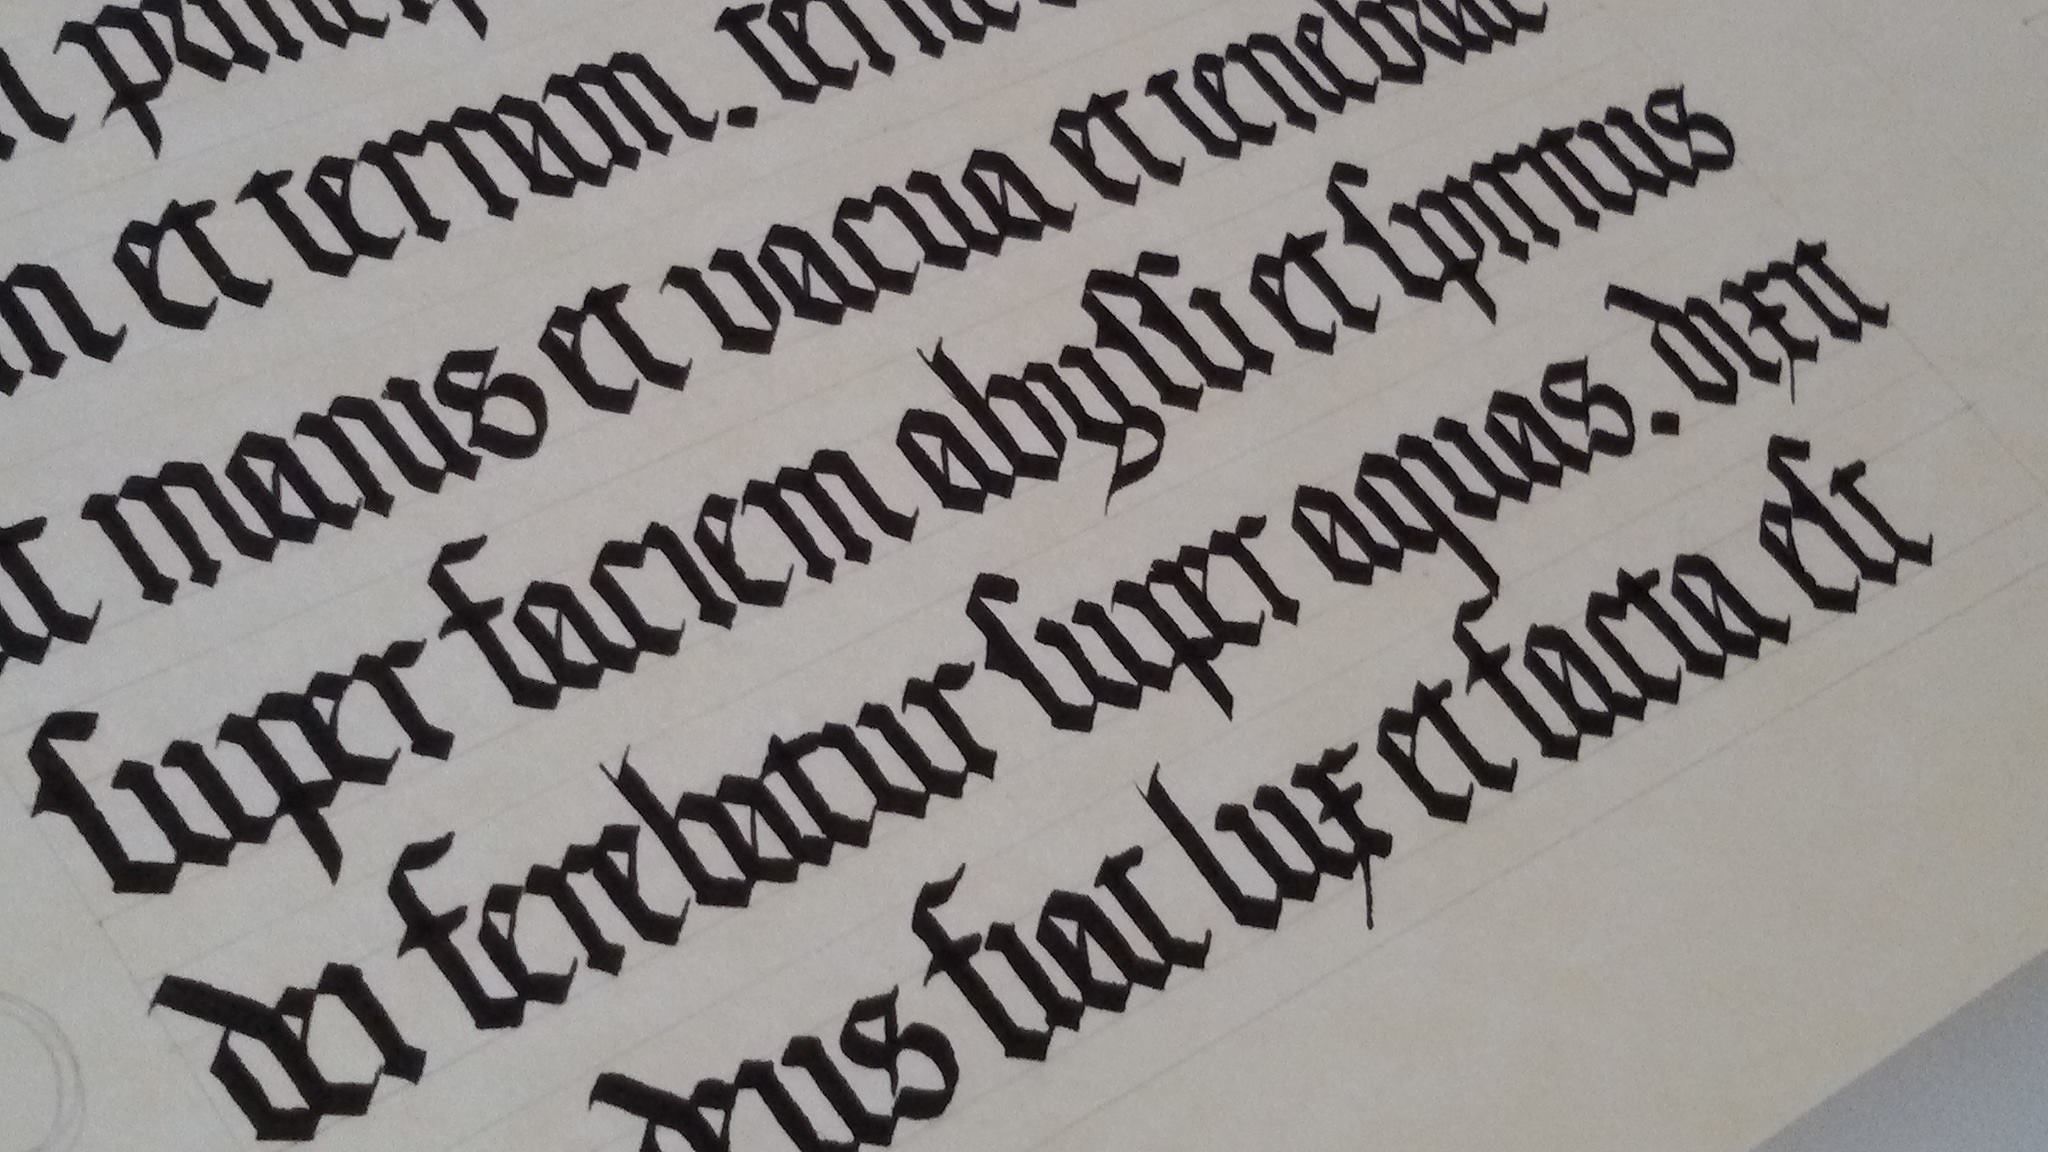 et terram.
inanis et vacua et tenebrae
super faciem abyssi et spiritus
dei ferebatur super aquas. dixit
deus fiat lux et facta est